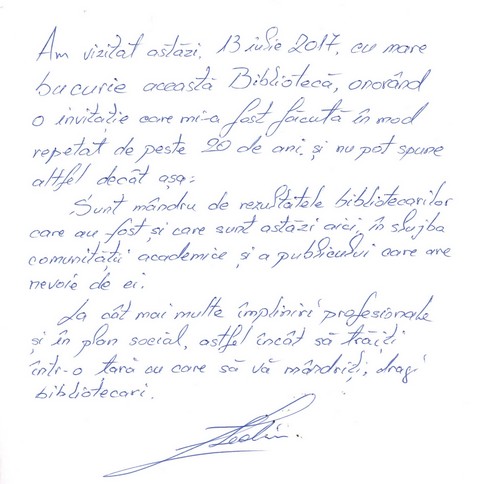 Am vizitat astăzi, 13 iulie 2017, cu mare
bucurie această Bibliotecă, onorând
o invitație care mi-a fost făcută în mod
repetat de peste 20 de ani și nu pot spune
altfel decât așa:
Sunt mândru de rezultatele bibliotecarilor
care au fost și care sunt astăzi aici, în slujba
comunității academice și a publicului care are
nevoie de ei.
La cât mai multe împliniri profesionale
și în plan social, astfel încât să trăiți
într-o țară cu care să vă mândriți, dragi
bibliotecari.